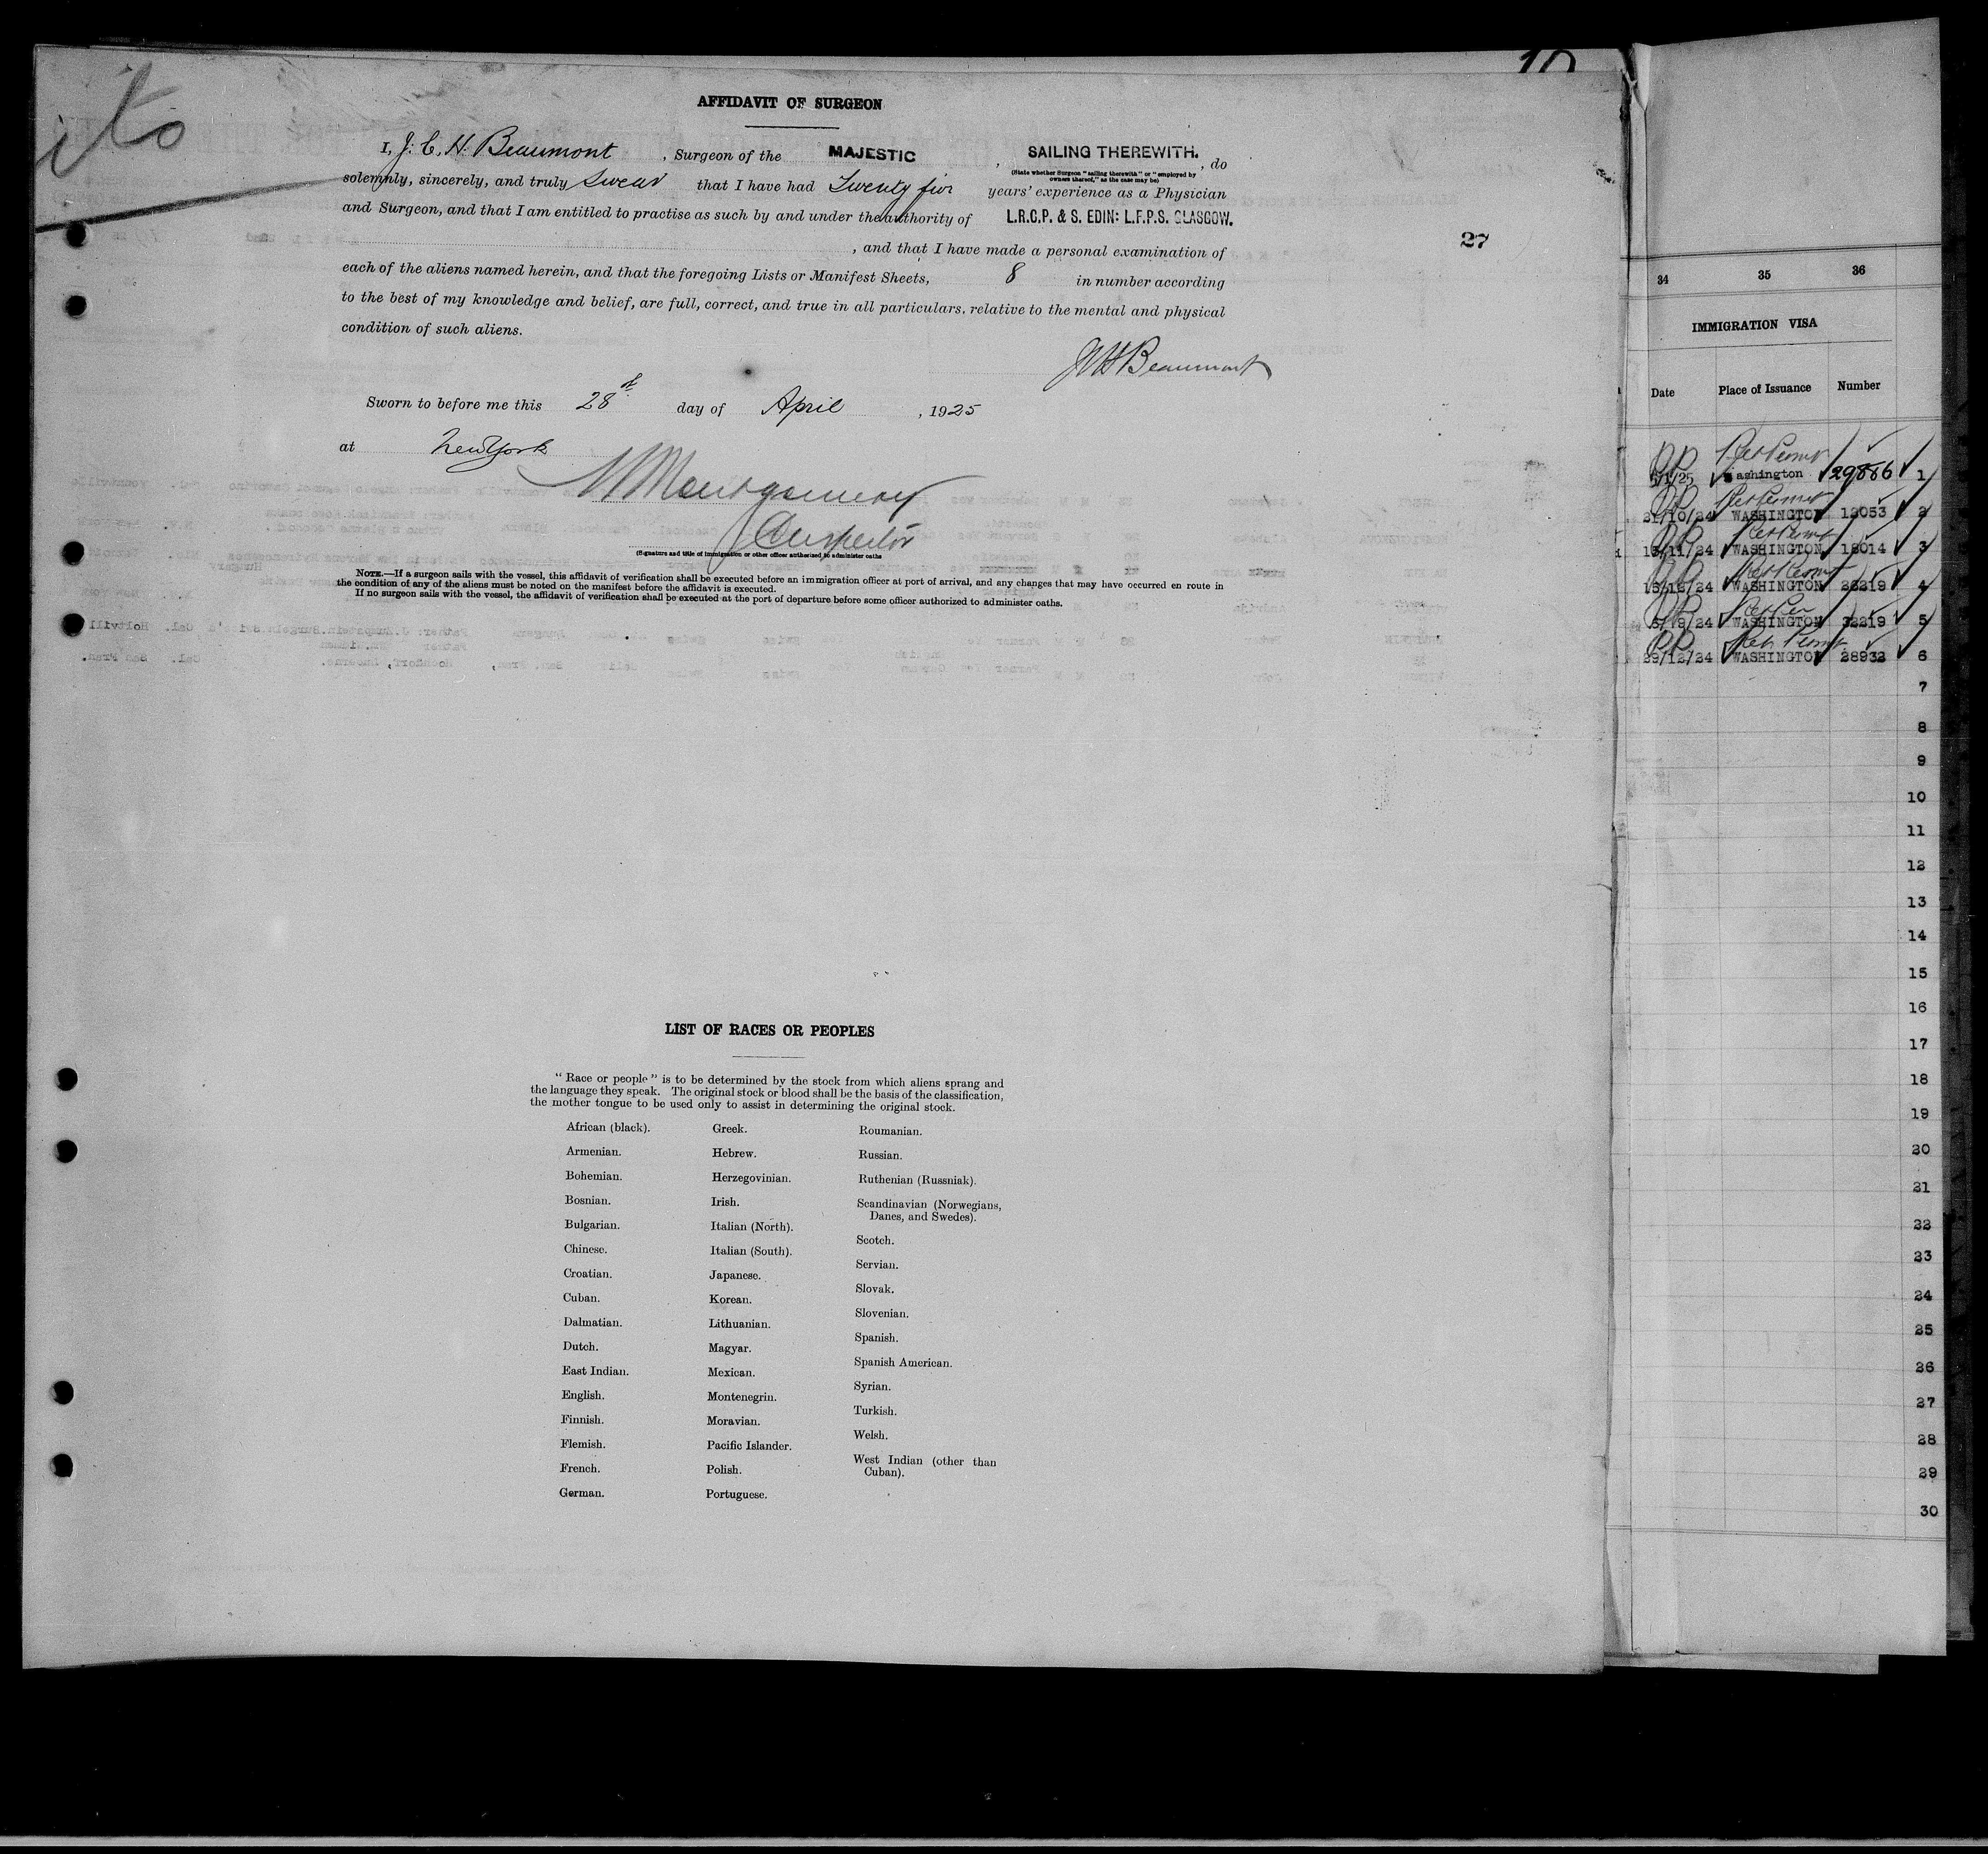 10
ito
AFFIDAVIT OF SURGEON
I, J. C. H. Beaumont, Surgeon of the MAJESTIC, SAILING THEREWITH., do
(State whether Surgeon "sailing therewith" or "employed by owners thereof," as the case may be)
solemnly, sincerely, and truly swear that I have had Twenty five years' experience as a Physician
and Surgeon, and that I am entitled to practise as such by and under the authority of L.R.C.P. & S. EDIN: L.F.P.S. GLASGOW.
, and that I have made a personal examination of
27
each of the aliens named herein, and that the foregoing Lists or Manifest Sheets, 8 in number according
to the best of my knowledge and belief, are full, correct, and true in all particulars, relative to the mental and physical
condition of such aliens.
Beaumont
Sworn to before me this 28th day of April, 1925
at New York
Montgomery
Inspector
(Signature and title of immigration or other officer authorized to administer oaths
NOTE.—If a surgeon sails with the vessel, this affidavit of verification shall be executed before an immigration officer at port of arrival, and any changes that may have occurred en route in
the condition of any of the aliens must be noted on the manifest before the affidavit is executed.
If no surgeon sails with the vessel, the affidavit of verification shall be executed at the port of departure before some officer authorized to administer oaths.
LIST OF RACES OR PEOPLES
"Race or people" is to be determined by the stock from which aliens sprang and
the language they speak. The original stock or blood shall be the basis of the classification,
the mother tongue to be used only to assist in determining the original stock.
African (black).
Armenian.
Bohemian.
Bosnian.
Bulgarian.
Chinese.
Croatian.
Cuban.
Dalmatian.
Dutch.
East Indian.
English.
Finnish.
Flemish.
French.
German.
Greek.
Hebrew.
Herzegovinian.
Irish.
Italian (North).
Italian (South).
Japanese.
Korean.
Lithuanian.
Magyar.
Mexican.
Montenegrin.
Moravian.
Pacific Islander.
Polish.
Portuguese.
Roumanian.
Russian.
Ruthenian (Russniak).
Scandinavian (Norwegians,
Danes, and Swedes).
Scotch.
Servian.
Slovak.
Slovenian.
Spanish.
Spanish American.
Syrian.
Turkish.
Welsh.
West Indian (other than
Cuban).
34 35 36
IMMIGRATION VISA
Date Place of Issuance Number
Ret Permit
5/1/25 Washington 29886 1
Ret Permit
21/10/24 WASHINGTON 12053 2
Ret Permit
13/11/24 WASHINGTON 18014 3
Ret Permit
WASHINGTON 4
Ret Per
WASHINGTON 32219 5
Ret Permit
29/12/24 WASHINGTON 28932 6
7
8
9
10
11
12
13
14
15
16
17
18
19
20
21
22
23
24
25
26
27
28
29
30